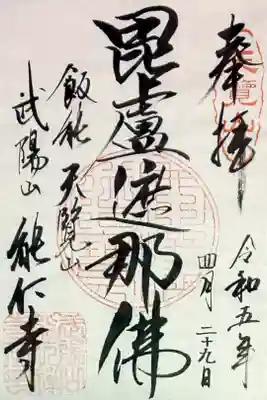 奉拝
令和五年
四月二十九日
毘盧遮那佛
飯能 天覧山
武陽山 能仁寺